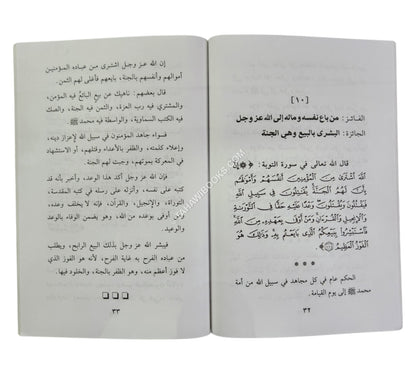 [١٠]
الفائز: من باع نفسه وماله إلى الله عز وجل
الجائزة: البشرى بالبيع وهي الجنة
قال الله تعالى في سورة التوبة: ﴿ إِنَّ
اللَّهَ اشْتَرَىٰ مِنَ الْمُؤْمِنِينَ أَنفُسَهُمْ وَأَمْوَالَهُم
بِأَنَّ لَهُمُ الْجَنَّةَ يُقَاتِلُونَ فِي سَبِيلِ اللَّهِ
فَيَقْتُلُونَ وَيُقْتَلُونَ وَعْدًا عَلَيْهِ حَقًّا فِي التَّوْرَاةِ
وَالْإِنجِيلِ وَالْقُرْآنِ وَمَنْ أَوْفَىٰ بِعَهْدِهِ مِنَ اللَّهِ
فَاسْتَبْشِرُوا بِبَيْعِكُمُ الَّذِي بَايَعْتُم بِهِ وَذَٰلِكَ هُوَ
الْفَوْزُ الْعَظِيمُ ﴾
* * *
الحكم عام في كل مجاهد في سبيل الله من أمة
محمد ﷺ إلى يوم القيامة.
٣٢
إن الله عز وجل اشترى من عباده المؤمنين
أموالهم وأنفسهم بالجنة، بايعهم فأغلى لهم الثمن.
قال بعضهم: ناهيك عن بيع البائع فيه المؤمن،
والمشتري فيه رب العزة، والثمن فيه الجنة، والصك
فيه الكتب السماوية، والواسطة فيه محمد ﷺ.
فسواء جاهد المؤمنون في سبيل الله لإعزاز دينه،
وإعلاء كلمته، والظفر بالأعداء وقتلهم، أو الاستشهاد
في المعركة بموتهم، وجبت لهم الجنة.
فإن الله عز وجل أكد هذا الوعد، وأخبر بأنه قد
كتبه على نفسه، وأنزله على رسله في كتبه المقدسة،
التوراة، والإنجيل، والقرآن، فإنه لا يخلف وعده،
ولا أحد أوفى بوعده من الله، وهو ضمن الوفاء بالوعد
والوعيد.
فيبشر الله عز وجل بذلك البيع الرابح، ويطلب
من عباده الفرح به غاية الفرح، لأنه هو الفوز الذي
لا فوز أعظم منه، وهو الظفر بالجنة، والخلود فيها.
٣٣